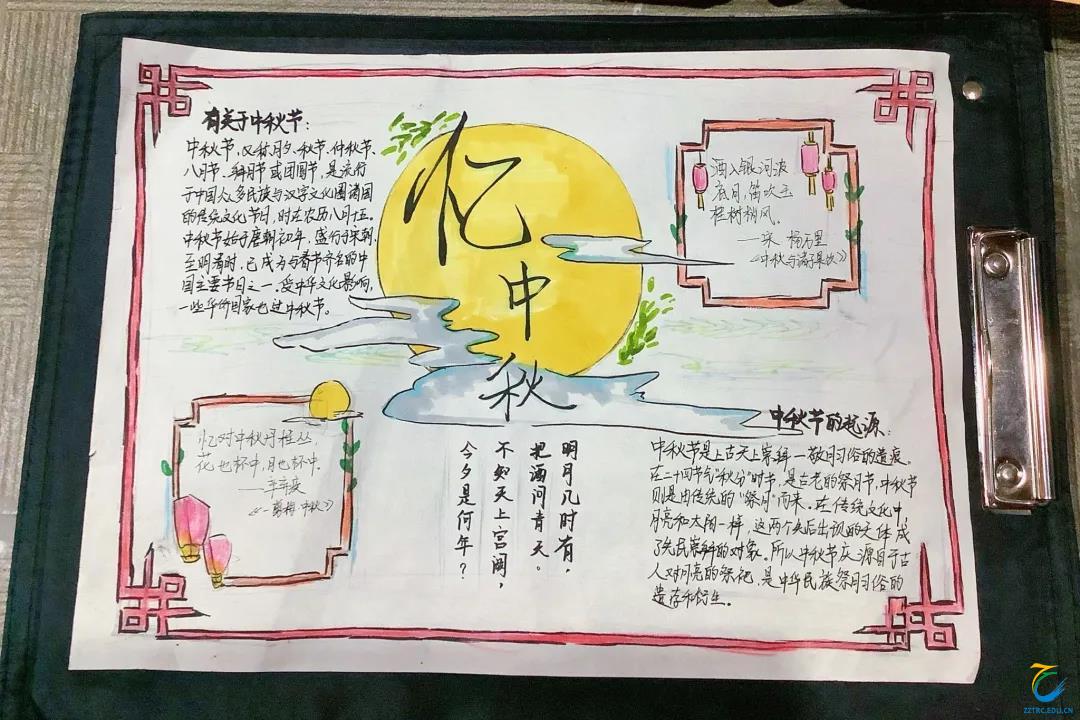 有关于中秋节：
中秋节，又称月夕、秋节、仲秋节、
八月节、拜月节或团圆节，是流行
于中国众多民族与汉字文化圈诸国
的传统文化节日，时在农历八月十五。
中秋节始于唐朝初年，盛行于宋朝，
至明清时，已成为与春节齐名的中
国主要节日之一。受中华文化影响，
一些华侨国家也过中秋节。
忆
中
秋
酒入银河波
底月，笛吹玉
桂树梢风。
——宋 杨万里
《中秋与诸子果饮》
忆对中秋丹桂丛，
花也杯中，月也杯中。
——辛弃疾
《一剪梅·中秋》
明月几时有，
把酒问青天。
不知天上宫阙，
今夕是何年？
中秋节的起源：
中秋节是上古天上崇拜——敬月习俗的遗痕。
在二十四节气“秋分”时节，是古老的祭月节，中秋节
则是由传统的“祭月”而来。在传统文化中，
月亮和太阳一样，这两个先后出现的天体成
了先民崇拜的对象。所以中秋节庆源自于古
人对月亮的祭祀，是中华民族祭月习俗的
遗存和衍生。
ZZTRC.EDU.CN